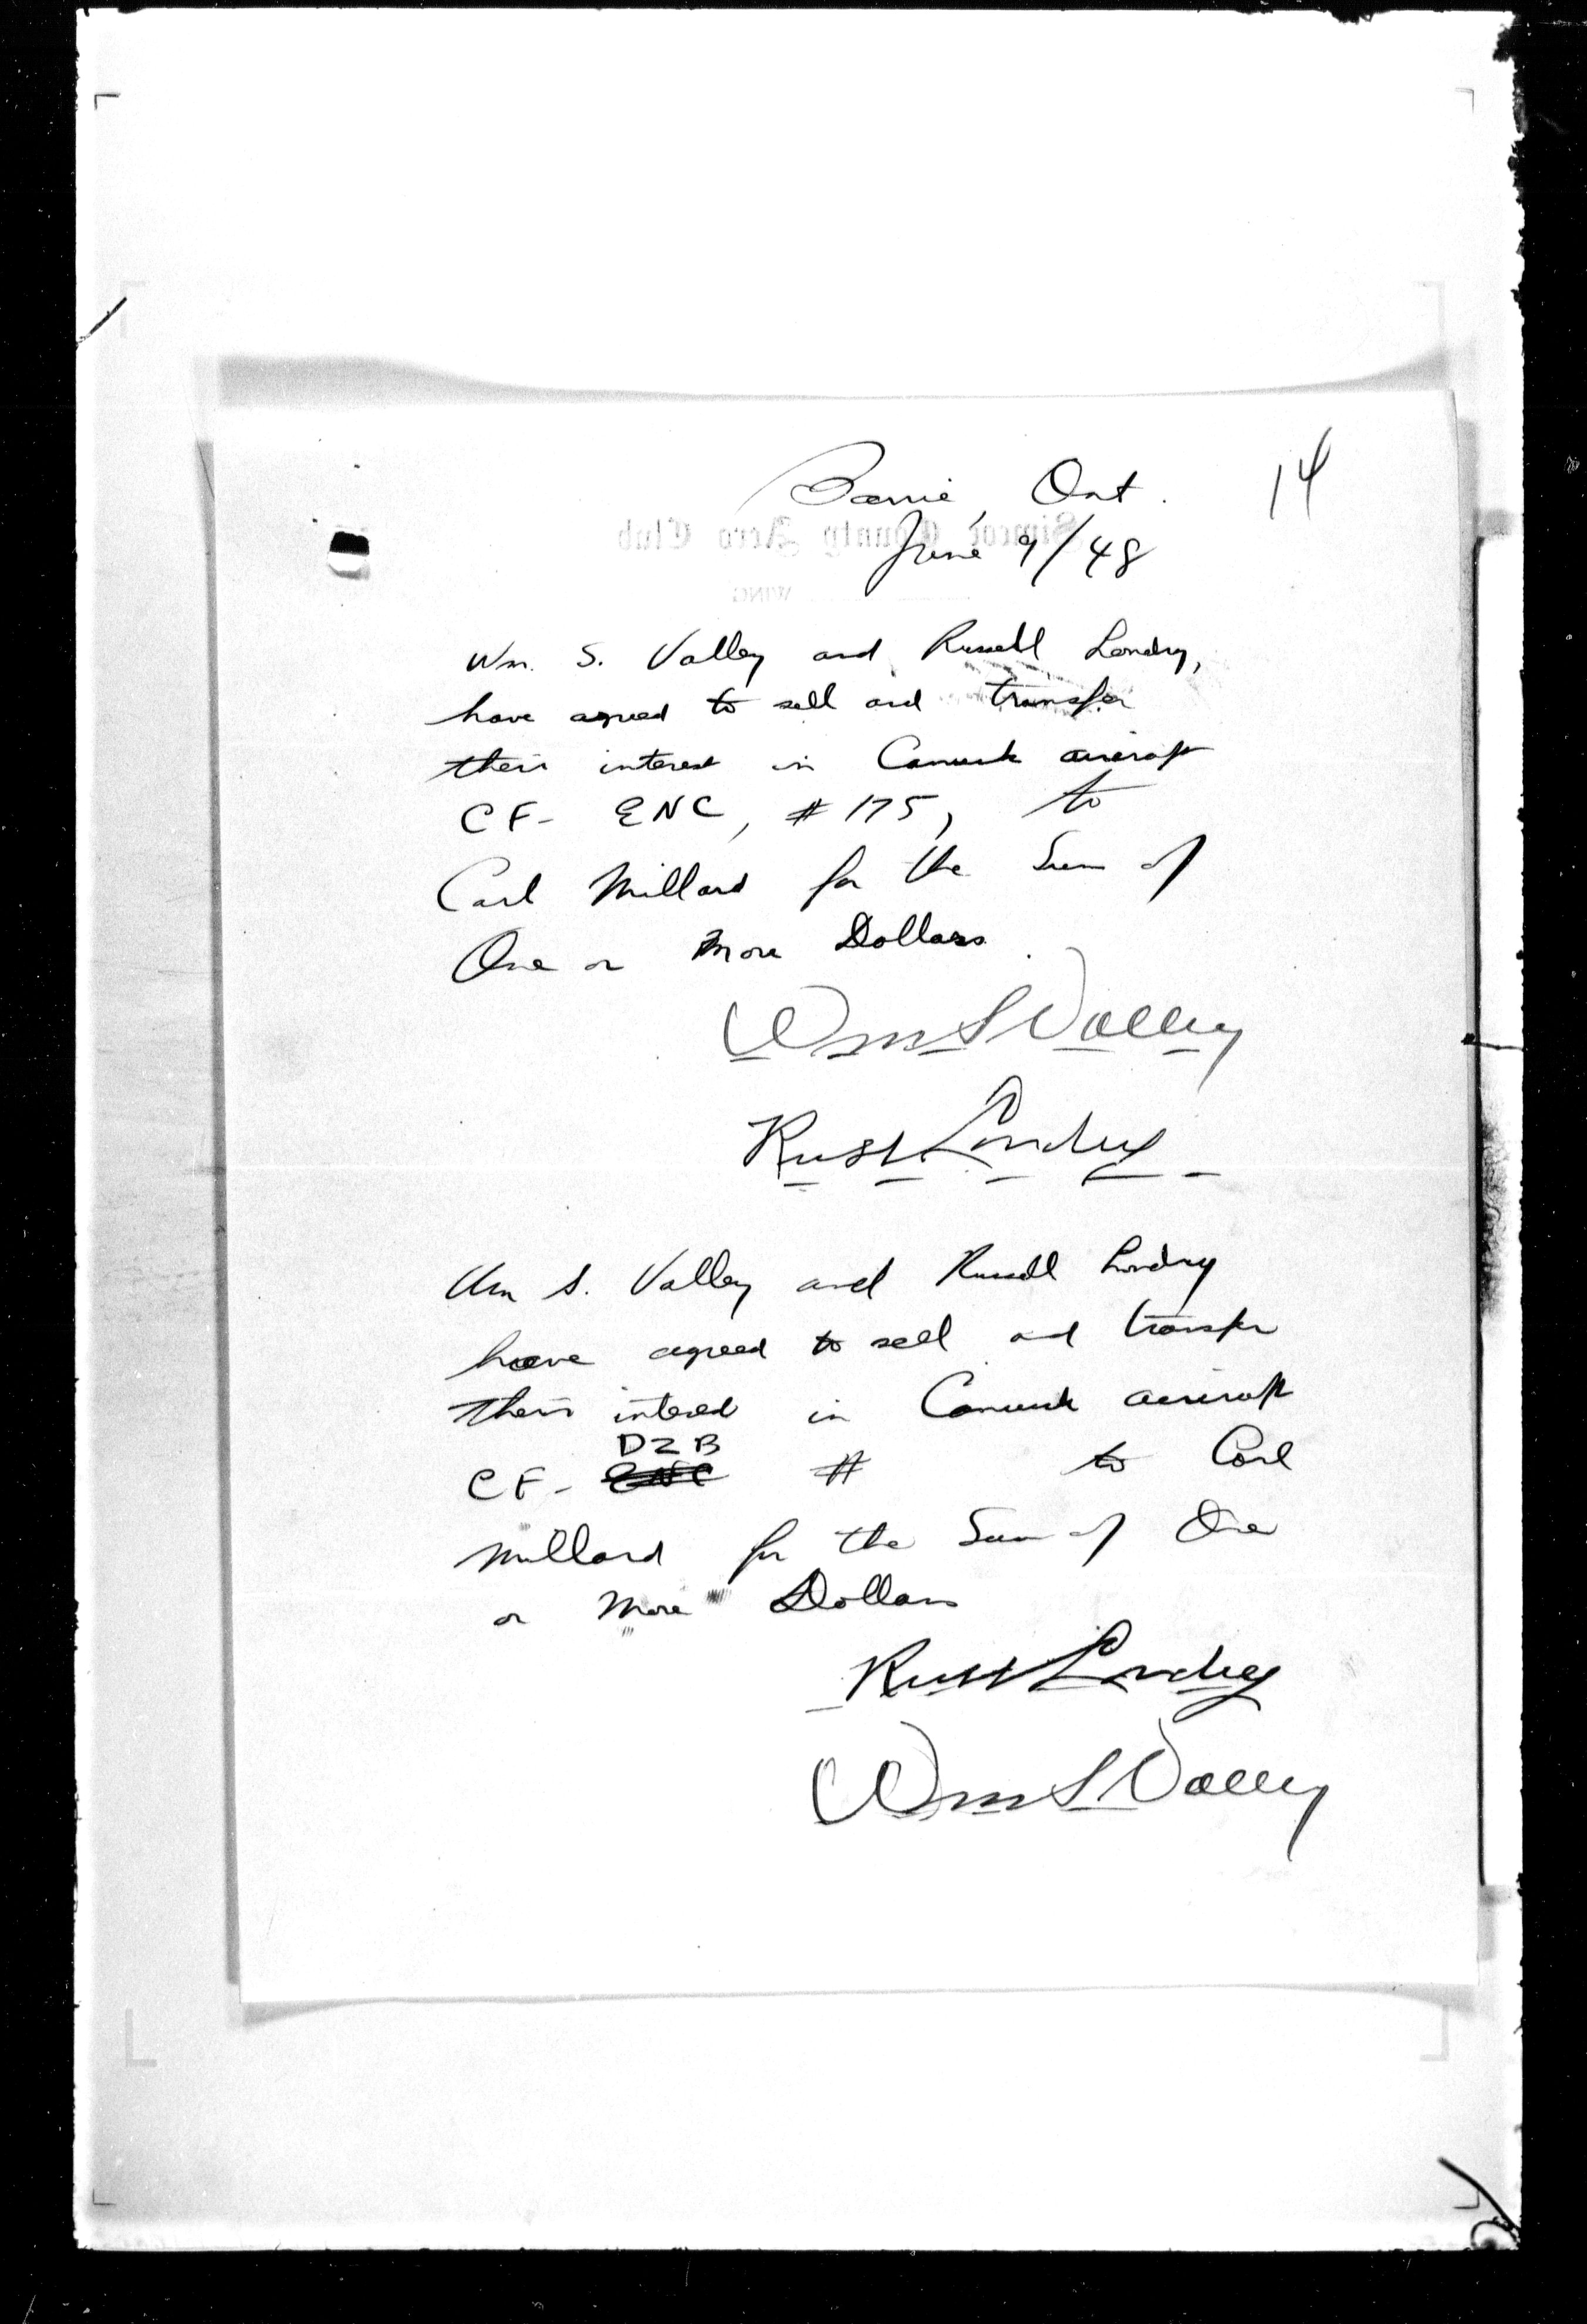 Barrie, Ont.
14
Simcoe County Aero Club
June 9/48
WING
Wm. S. Valley and Russell Londry,
have agreed to sell and transfer
their interest in Canuck aircraft
CF- ENC, # 175, to
Carl Millard for the Sum of
One or More Dollars.
Wm S Valley
Russ Londry
Wm S. Valley and Russell Londry
have agreed to sell and transfer
their interest in Canuck aircraft
DZB
CF- ENC # to Carl
Millard for the Sum of One
or More Dollars
Russ Londry
Wm S Valley